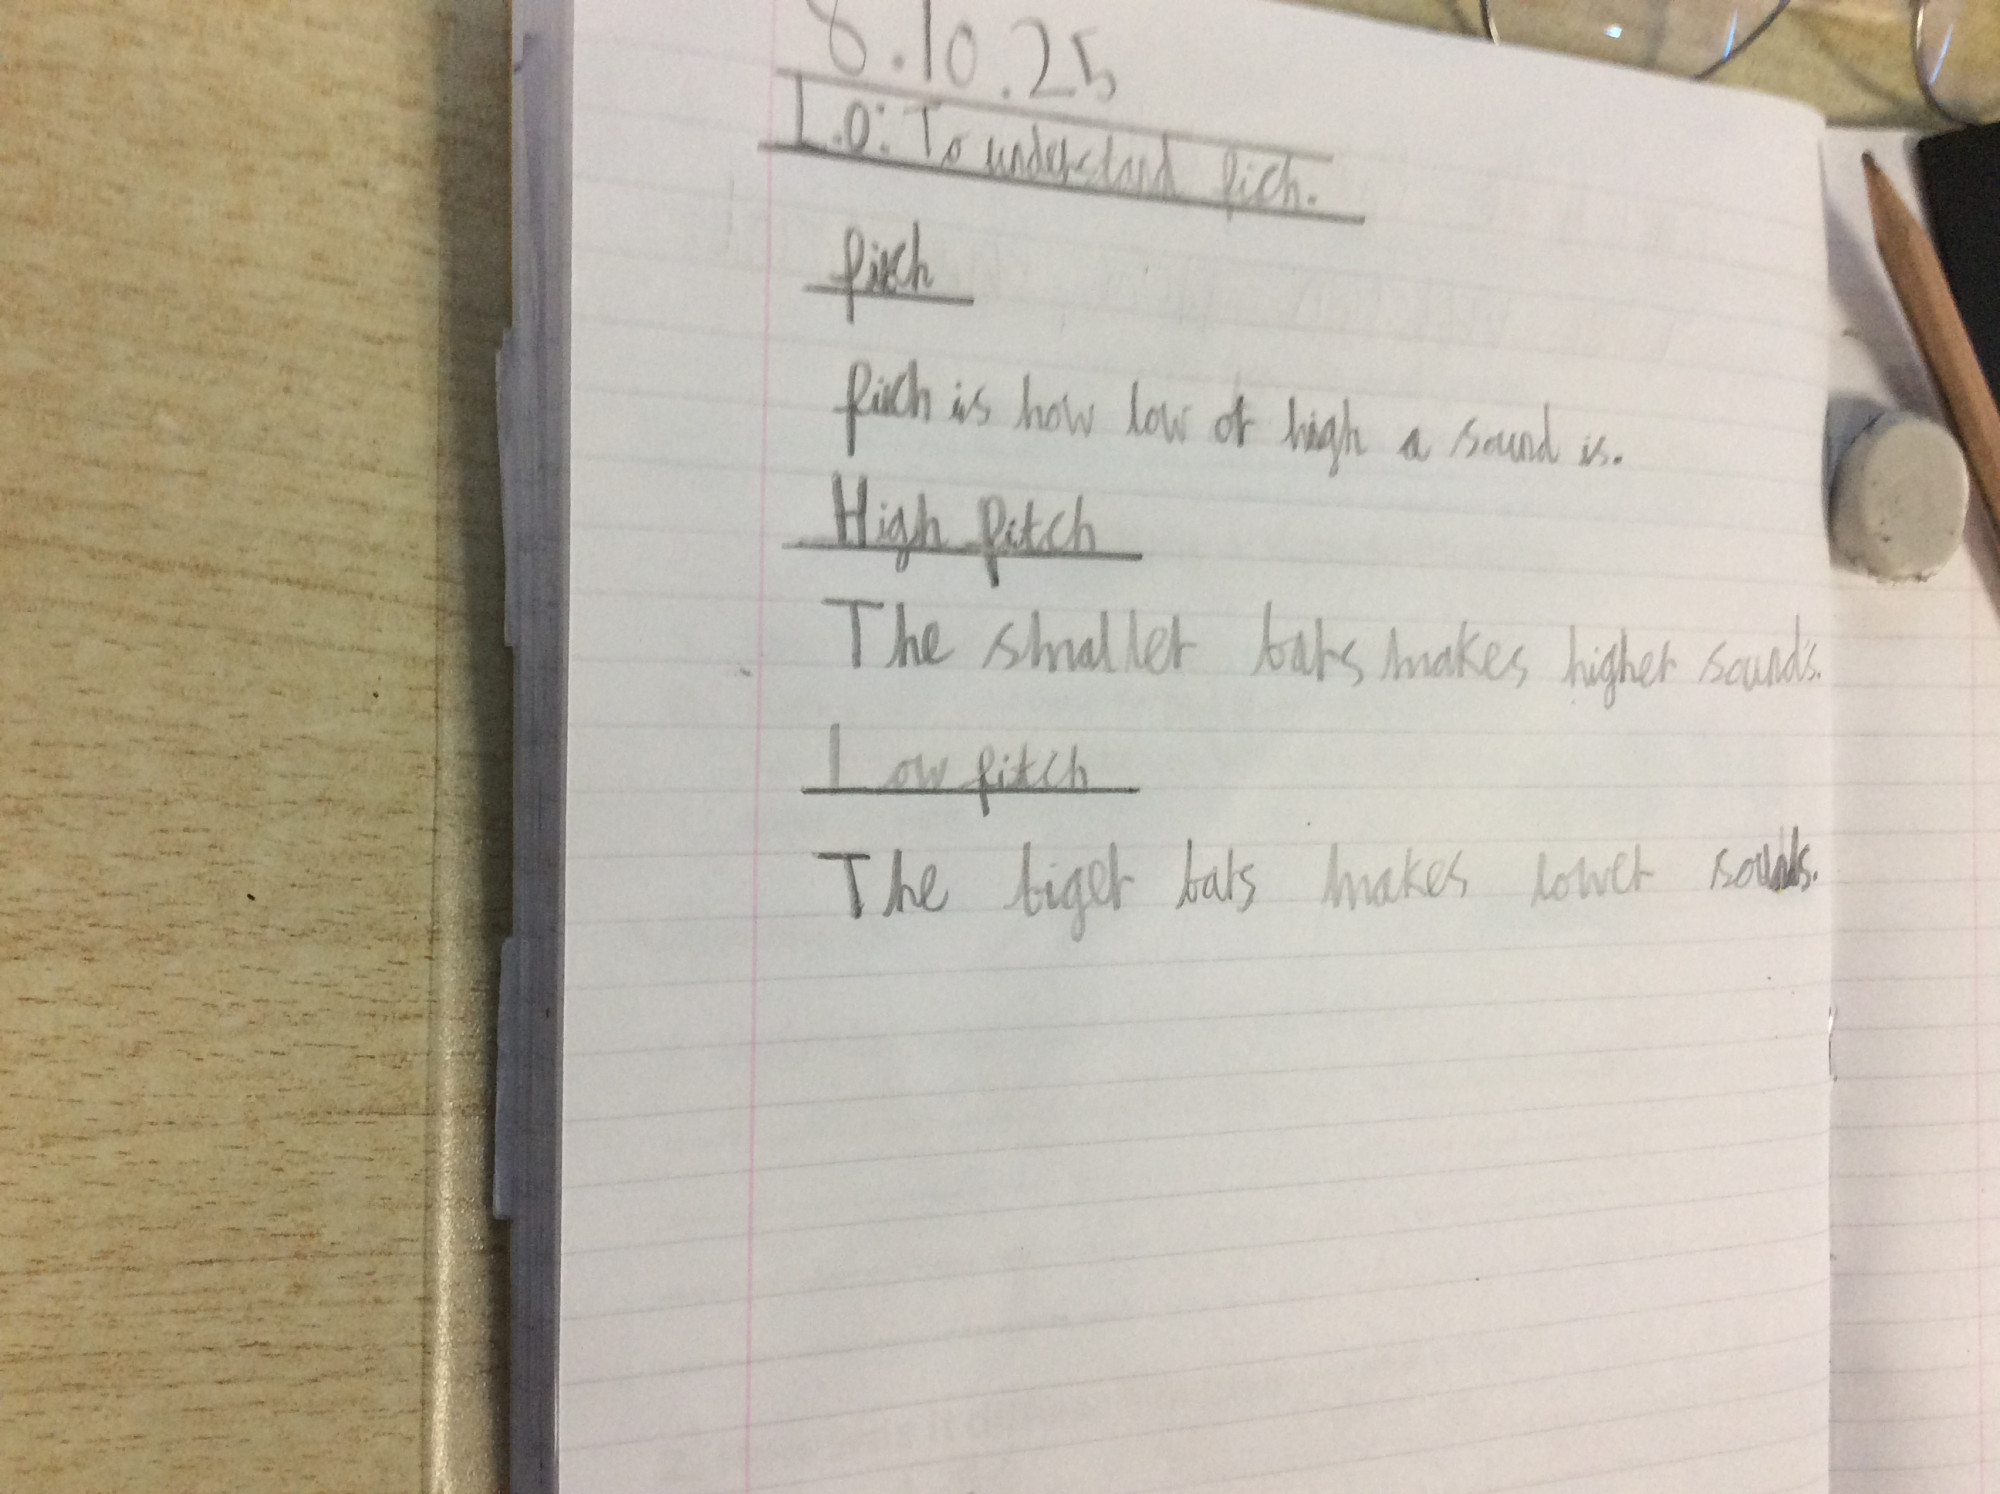 8.10.25
L.O: To understand pich.
pitch
pitch is how low or high a sound is.
High pitch
The smaller bars makes higher sounds.
Low pitch
The biger bars makes lower sounds.